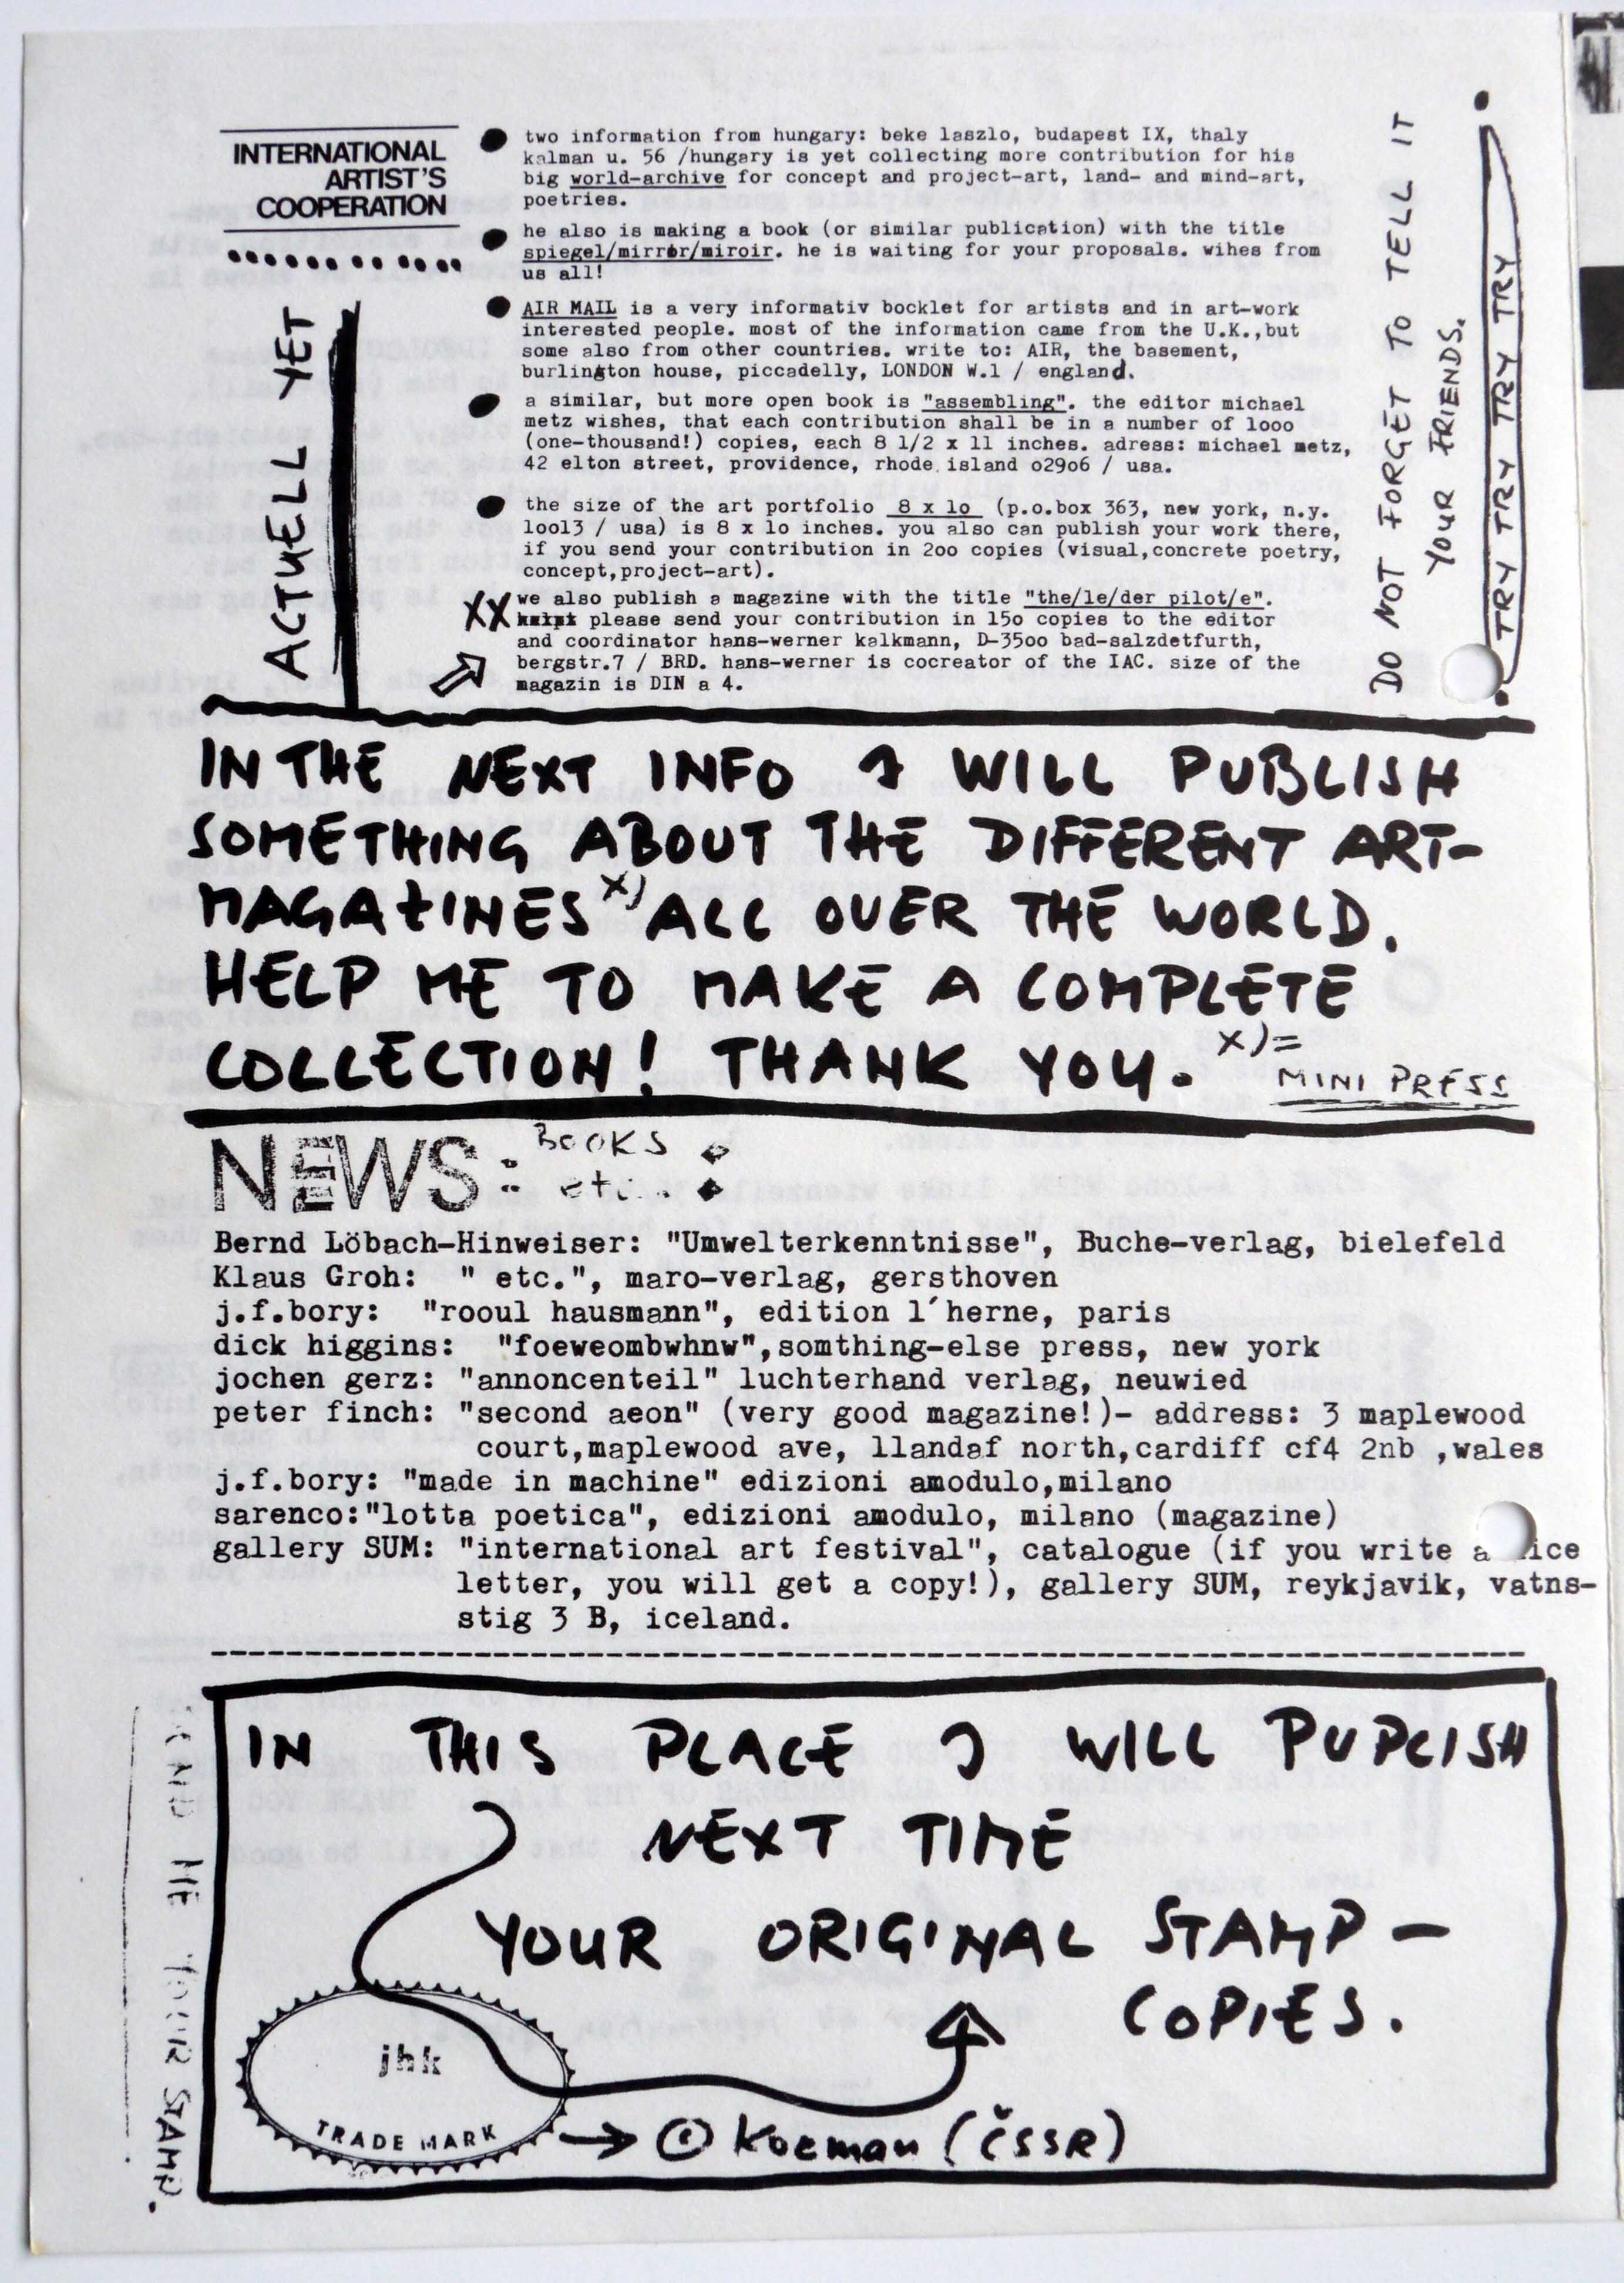 INTERNATIONAL
ARTIST'S
COOPERATION
ACTUELL YET
two information from hungary: beke laszlo, budapest IX, thaly
kalman u. 56 /hungary is yet collecting more contribution for his
big world-archive for concept and project-art, land- and mind-art,
poetries.
he also is making a book (or similar publication) with the title
spiegel/mirror/miroir. he is waiting for your proposals. wihes from
us all!
AIR MAIL is a very informativ booklet for artists and in art-work
interested people. most of the information came from the U.K.,but
some also from other countries. write to: AIR, the basement,
burlington house, piccadelly, LONDON W.1 / england.
a similar, but more open book is "assembling". the editor michael
metz wishes, that each contribution shall be in a number of 1ooo
(one-thousand!) copies, each 8 1/2 x 11 inches. adress: michael metz,
42 elton street, providence, rhode island o29o6 / usa.
the size of the art portfolio 8 x 1o (p.o.box 363, new york, n.y.
1oo13 / usa) is 8 x 1o inches. you also can publish your work there,
if you send your contribution in 2oo copies (visual,concrete poetry,
concept,project-art).
XX we also publish a magazine with the title "the/le/der pilot/e".
please send your contribution in 15o copies to the editor
and coordinator hans-werner kalkmann, D-35oo bad-salzdetfurth,
bergstr.7 / BRD. hans-werner is cocreator of the IAC. size of the
magazin is DIN a 4.
DO NOT FORGET TO TELL IT
YOUR FRIENDS.
TRY TRY TRY TRY TRY
IN THE NEXT INFO I WILL PUBLISH
SOMETHING ABOUT THE DIFFERENT ART-
MAGAZINES x) ALL OVER THE WORLD.
HELP ME TO MAKE A COMPLETE
COLLECTION! THANK YOU. x)=
MINI PRESS
NEWS: BOOKS :
etc.
Bernd Löbach-Hinweiser: "Umwelterkenntnisse", Buche-verlag, bielefeld
Klaus Groh: " etc.", maro-verlag, gersthoven
j.f.bory: "rooul hausmann", edition l´herne, paris
dick higgins: "foeweombwhnw",somthing-else press, new york
jochen gerz: "annoncenteil" luchterhand verlag, neuwied
peter finch: "second aeon" (very good magazine!)- address: 3 maplewood
court,maplewood ave, llandaf north,cardiff cf4 2nb ,wales
j.f.bory: "made in machine" edizioni amodulo,milano
sarenco:"lotta poetica", edizioni amodulo, milano (magazine)
gallery SUM: "international art festival", catalogue (if you write a nice
letter, you will get a copy!), gallery SUM, reykjavik, vatns-
stig 3 B, iceland.
IN THIS PLACE I WILL PUPLISH
NEXT TIME
YOUR ORIGINAL STAMP-
COPIES.
jhk
TRADE MARK
→ © Kocman (ČSSR)
SEND ME YOUR STAMP.